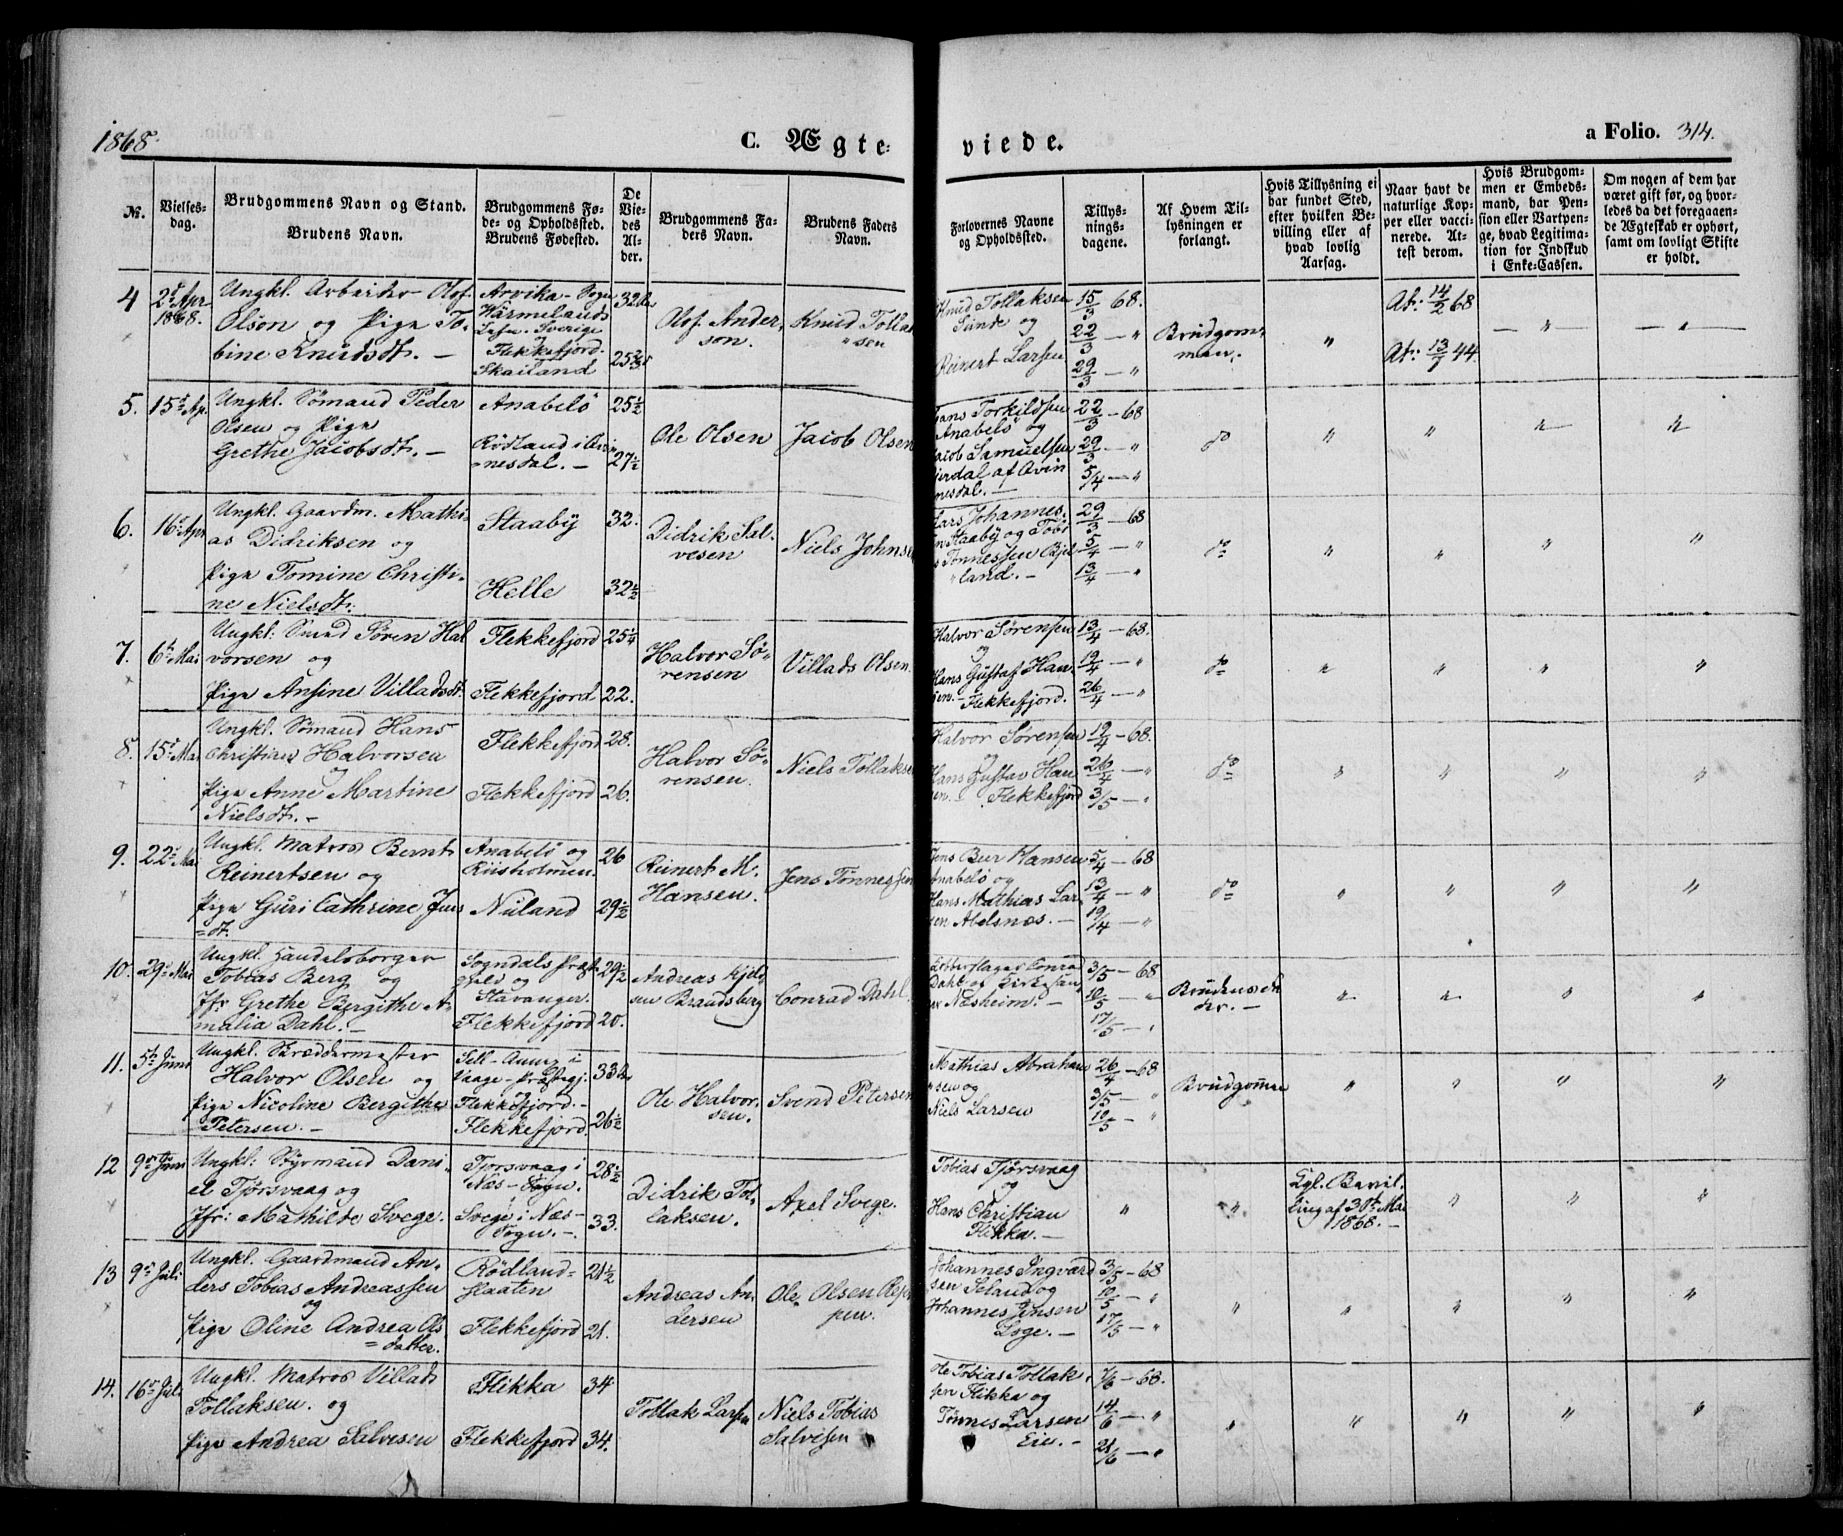 1868.
C. Ægte-
viede.
a Folio. 314.
No.
Vielses-
dag.
Brudgommens Navn og Stand.
Brudens Navn.
Brudgommens Fø-
de- og Opholdssted.
Brudens Fødested.
De
Vie-
des
Al-
der.
Brudgommens Fa-
ders Navn.
Brudens Faders
Navn.
Forlovernes Navne
og Opholdssted.
Tillys-
nings-
dagene.
Af Hvem Til-
lysningen er
forlangt.
Hvis Tillysning ei
har fundet Sted,
efter hvilken Be-
villing eller af
hvad lovlig
Aarsag.
Naar havt de
naturlige Kop-
per eller vacci-
nerede. At-
test derom.
Hvis Brudgom-
men er Embeds-
mand, har Pen-
sion eller Vartpen-
ge, hvad Legitima-
tion for Indskud
i Enke-Cassen.
Om nogen af dem har
været gift før, og hvor-
ledes da det foregaaen-
de Ægteskab er ophørt,
samt om lovligt Skifte
er holdt.
4
2den Apr.
1868.
Ungkl. Arbeider Olof
Olson og Pige To-
bine Knudsdt. —
Arvika-Sogn
Wärmelands
Lehn-Sverige
Flekkefjord.
Skailand
32
25
Olof Ander-
son.
Knud Tollak
sen
Knud Tollaksen
Sunde og
Reinert Larsen
15/3 68.
22/3 — "
29/3 — "
Brudgom-
men.
"
At: 14/2 68
At: 13/7 44.
— " —
— " —
5.
15de Ap.
Ungkl. Sømand Peder
Olsen og Pige
Grethe Jacobsdt. —
Anabelø
Rødland i Qvi
nesdal. —
25½
27½
Ole Olsen
Jacob Olsen
Hans Torkildsen
Anabelø og
Jacob Samuelsen
af Qvin
nesdal. —
22/3 — 68
29/3 — "
5/4 — "
do
"
"
"
"
6.
16de Apr
Ungkl. Gaardm. Mathi-
as Didriksen og
Pige Tomine Christi-
ne Nielsdt.
Staaby
Helle
32.
32½
Didrik Sal-
vesen
Niels Johns
Lars Johannes-
en Staaby og Tobi
s Tønnessen Bjel
land. —
29/3 — 68
5/4 — "
13/4 — "
do
"
"
"
"
7.
6te Mai
Ungkl: Smed Søren Hal
vorsen og
Pige Ansine Villadsdt.
Flekkefjord
Flekkefjord
25¼
22.
Halvor Sø-
rensen
Villads Olsen.
Halvor Sørensen
og
Hans Gustaf Han-
sen. — Flekkefjord.
13/4 — 68.
19/4 — "
26/4 — "
do
"
"
"
"
8.
15de Mai
Ungkl. Sømand Hans
Christian Halvorsen
og
Pige Anne Martine
Nielsdt. —
Flekkefjord
Flekkefjord
28.
26.
Halvor Sø-
rensen.
Niels Tollaks
Halvor Sørensen
og
Hans Gustav Han
sen. Flekkefjord
19/4 — 68.
26/4 — "
3/5 — "
do
"
"
"
"
9.
22de Mai
Ungkl. Matros Bernt
Reinertsen og
Pige Guri Cathrine Jens
dt.
Anabelø og
Riisholmen.
Nuland
26
29½
Reinert M.
Hansen.
Jens Tønnessen
Jens Beer Hansen
Anabelø og
Hans Mathias Lar
sen Abelsnæs. —
5/4 — 68
13/4 — "
19/4 — "
do
"
"
"
"
10.
29de Mai
Ungkl. Handelsborger
Tobias Berg og
Jfr: Grethe Bergithe A-
malia Dahl. —
Sogndals Præste
gjeld og
Stavanger.
Flekkefjord
29½
20.
Andreas Kjeld
sen Brandsberg
Conrad Dahl.
Kobberslager Conrad
Dahl og Kirkesan
ger Næsheim. —
3/5 — 68
10/5 — "
17/5 — "
Brudens Fa
der. —
"
"
"
"
11.
5te Juni
Ungkl. Skreddermester
Halvor Olsen og
Pige Nicoline Bergithe
Petersen. —
Vaage-Præstegj.
Flekkefjord. —
Flekkefjord.
26½
Ole Halvor-
sen.
Svend Petersen
Mathias Abraham
sen og
Niels Larsen
26/4 — 68
3/5 — "
10/5 — "
Brudgommen
"
"
"
"
12
9de Juni
Ungkl: Styrmand Dani-
el Tjørsvaag og
Jfr: Mathilde Svege.
Tjorsvaag i
Næs-Sogn.
Svege i Næs-
Sogn. —
28½
33.
Didrik Tol-
laksen.
Axel Svege.
Tobias Tjørsvaag
og
Hans Christian
Flikka. —
"
"
Kgl. Bevil-
ling af 30te Mai
1868. —
"
"
"
13
9de Juli
Ungkl. Gaardmand An-
ders Tobias Andreassen
og
Pige Oline Andrea Ols
datter.
Rødland-
slaaten
Flekkefjord
21½
21.
Andreas An-
dersen
Ole Olsen
Johannes Ingvard
sen Seland og
Johannes Jensen
Loge. —
3/5 — 68
10/5 — "
17/5 — "
"
"
"
"
"
14.
16de Juli
Ungkl. Matros Villads
Tollaksen. og
Pige Andrea Salvesen
Flikka
Flekkefjord
34
34.
Tollak Larsen
Niels Tobias
Salvesen
Ole Tobias Tollak
sen Flikka og
Tønnes Larsen
Eie. —
7/6 — 68.
14/6 — "
21/6 — "
"
"
"
"
"